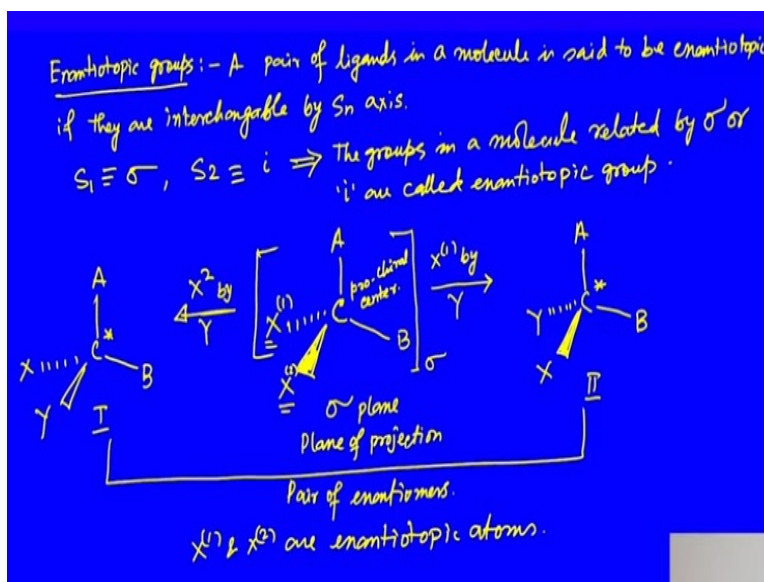 Enantiotopic groups:- A pair of ligands in a molecule is said to be enantiotopic
if they are interchangable by Sn axis.
S1 ≡ σ, S2 ≡ i ⇒ The groups in a molecule related by σ or
'i' are called enantiotopic group.
A
X
C*
B
Y
I
X² by
Y
A
X(1)
C
pro-chiral
center.
B
X(2)
σ
X(1) by
Y
A
Y
C*
B
X
II
σ plane
Plane of projection
Pair of enantiomers.
X(1) & X(2) are enantiotopic atoms.